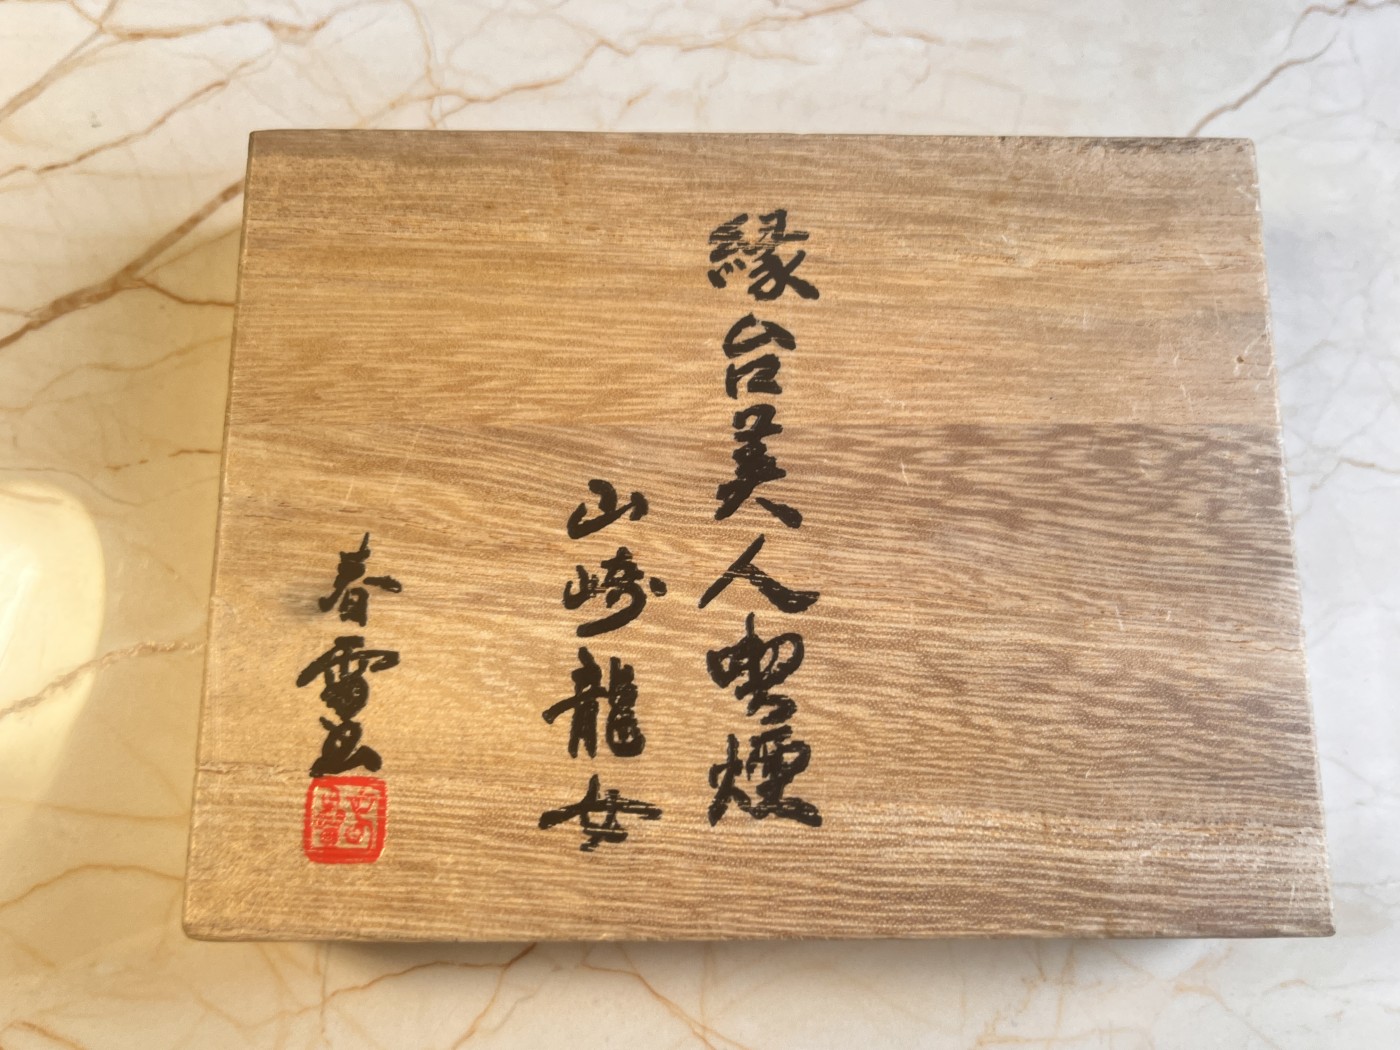 縁台美人喫煙
山崎龍女
春雪